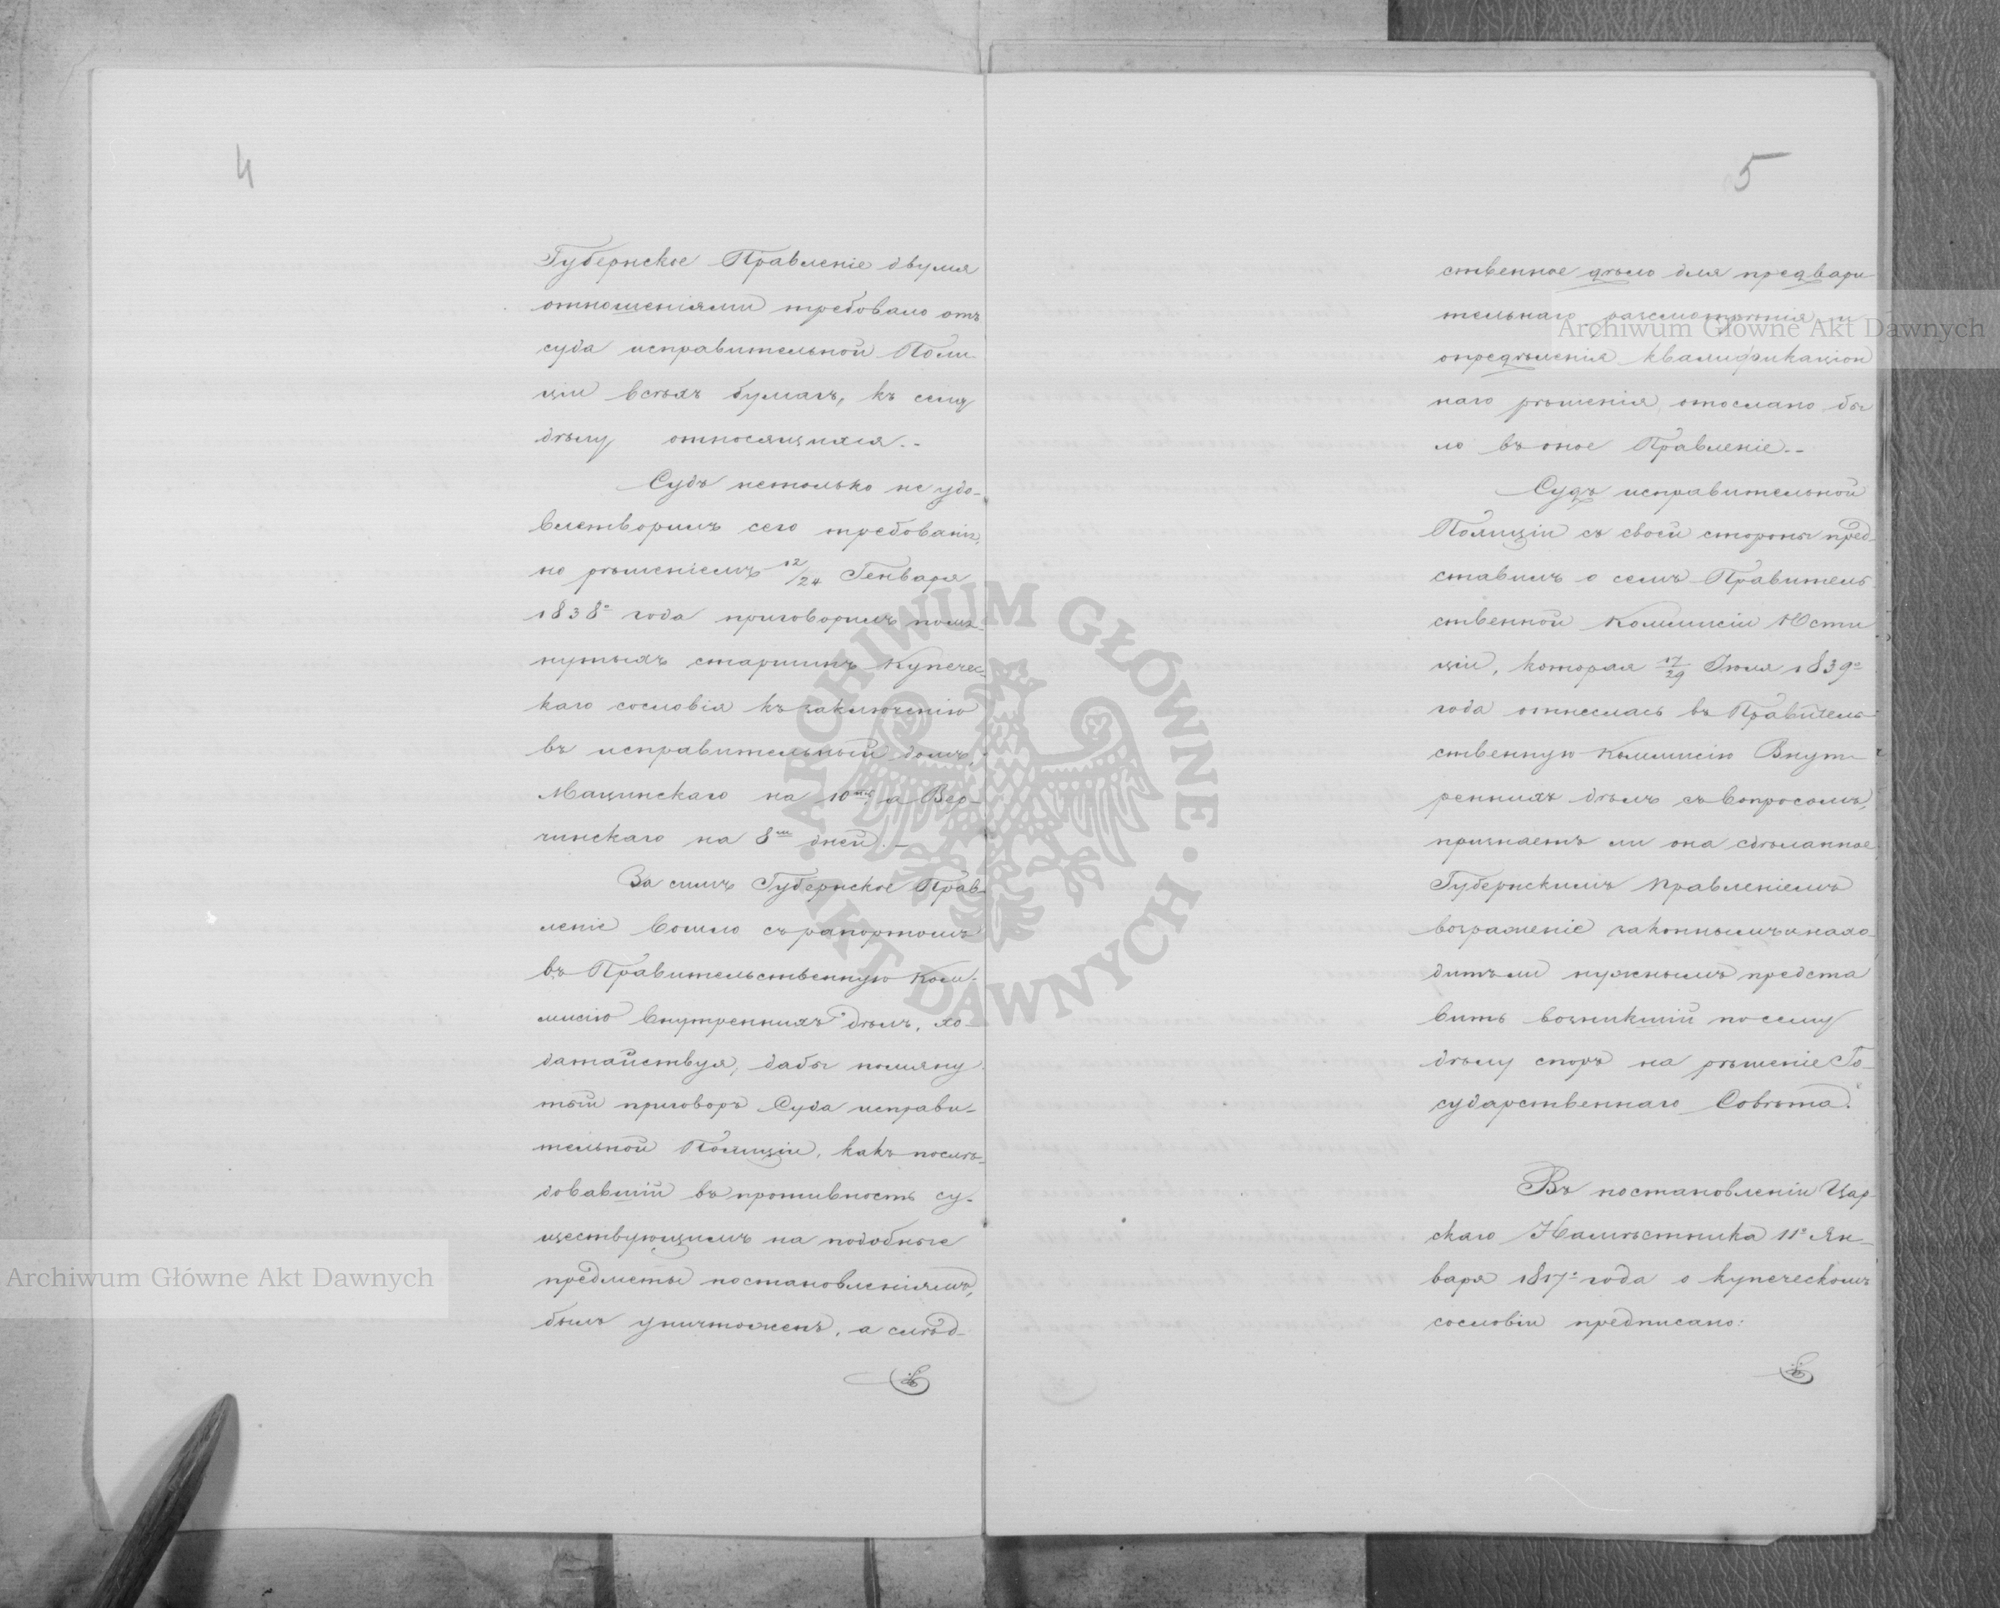 4
Губернское Правленіе двумя
отношеніями требовало отъ
суда исправительной Поли
ціи всѣхъ бумагъ, къ сему
дѣлу относящихся.-
Судъ нетолько не удо-
влетворилъ сего требованія,
но рѣшеніемъ 12/24 Генваря
1838го года приговорилъ помя-
нутыхъ старшинъ купечес-
каго сословія къ заключенію
въ исправительный домъ,
на 10ть, а
на 8мь дней.-
За симъ Губернское Прав-
леніе вошло съ рапортомъ
въ Правительственную Ком-
мисію Внутреннихъ Дѣлъ, хо-
датайствуя, дабы помяну
тый приговоръ Суда исправи-
тельной Полиціи, какъ послѣ-
довавшій въ противность су-
ществующимъ на подобные
предметы постановленіямъ,
былъ уничтоженъ, а слѣд-
5
ственное дѣло для предвари
тельнаго разсмотрѣнія и
опредѣленія квалификацiон
наго рѣшенія отослано бы
ло въ оное Правленіе.-
Судъ исправительной
Полиціи съ своей стороны пред-
ставилъ о семъ Правитель
ственной Коммисіи Юсти
ціи, которая 17/29 Іюля 1839го
года отнеслась въ Правитель-
ственную Коммисію Внут-
реннихъ дѣлъ съ вопросомъ,
признаетъ ли она сдѣланное
Губернскимъ Правленіемъ
возраженіе законнымъ и нахо-
дитъ ли нужнымъ предста
вить возникшій по сему
дѣлу споръ на рѣшеніе Го-
сударственнаго Совѣта.
Въ постановленіи Цар-
скаго Намѣстника 11го Ян-
варя 1817го года о купеческомъ
сословіи предписано:
Archiwum Główne Akt Dawnych
Archiwum Główne Akt Dawnych
ARCHIWUM GŁÓWNE · AKT DAWNYCH ·